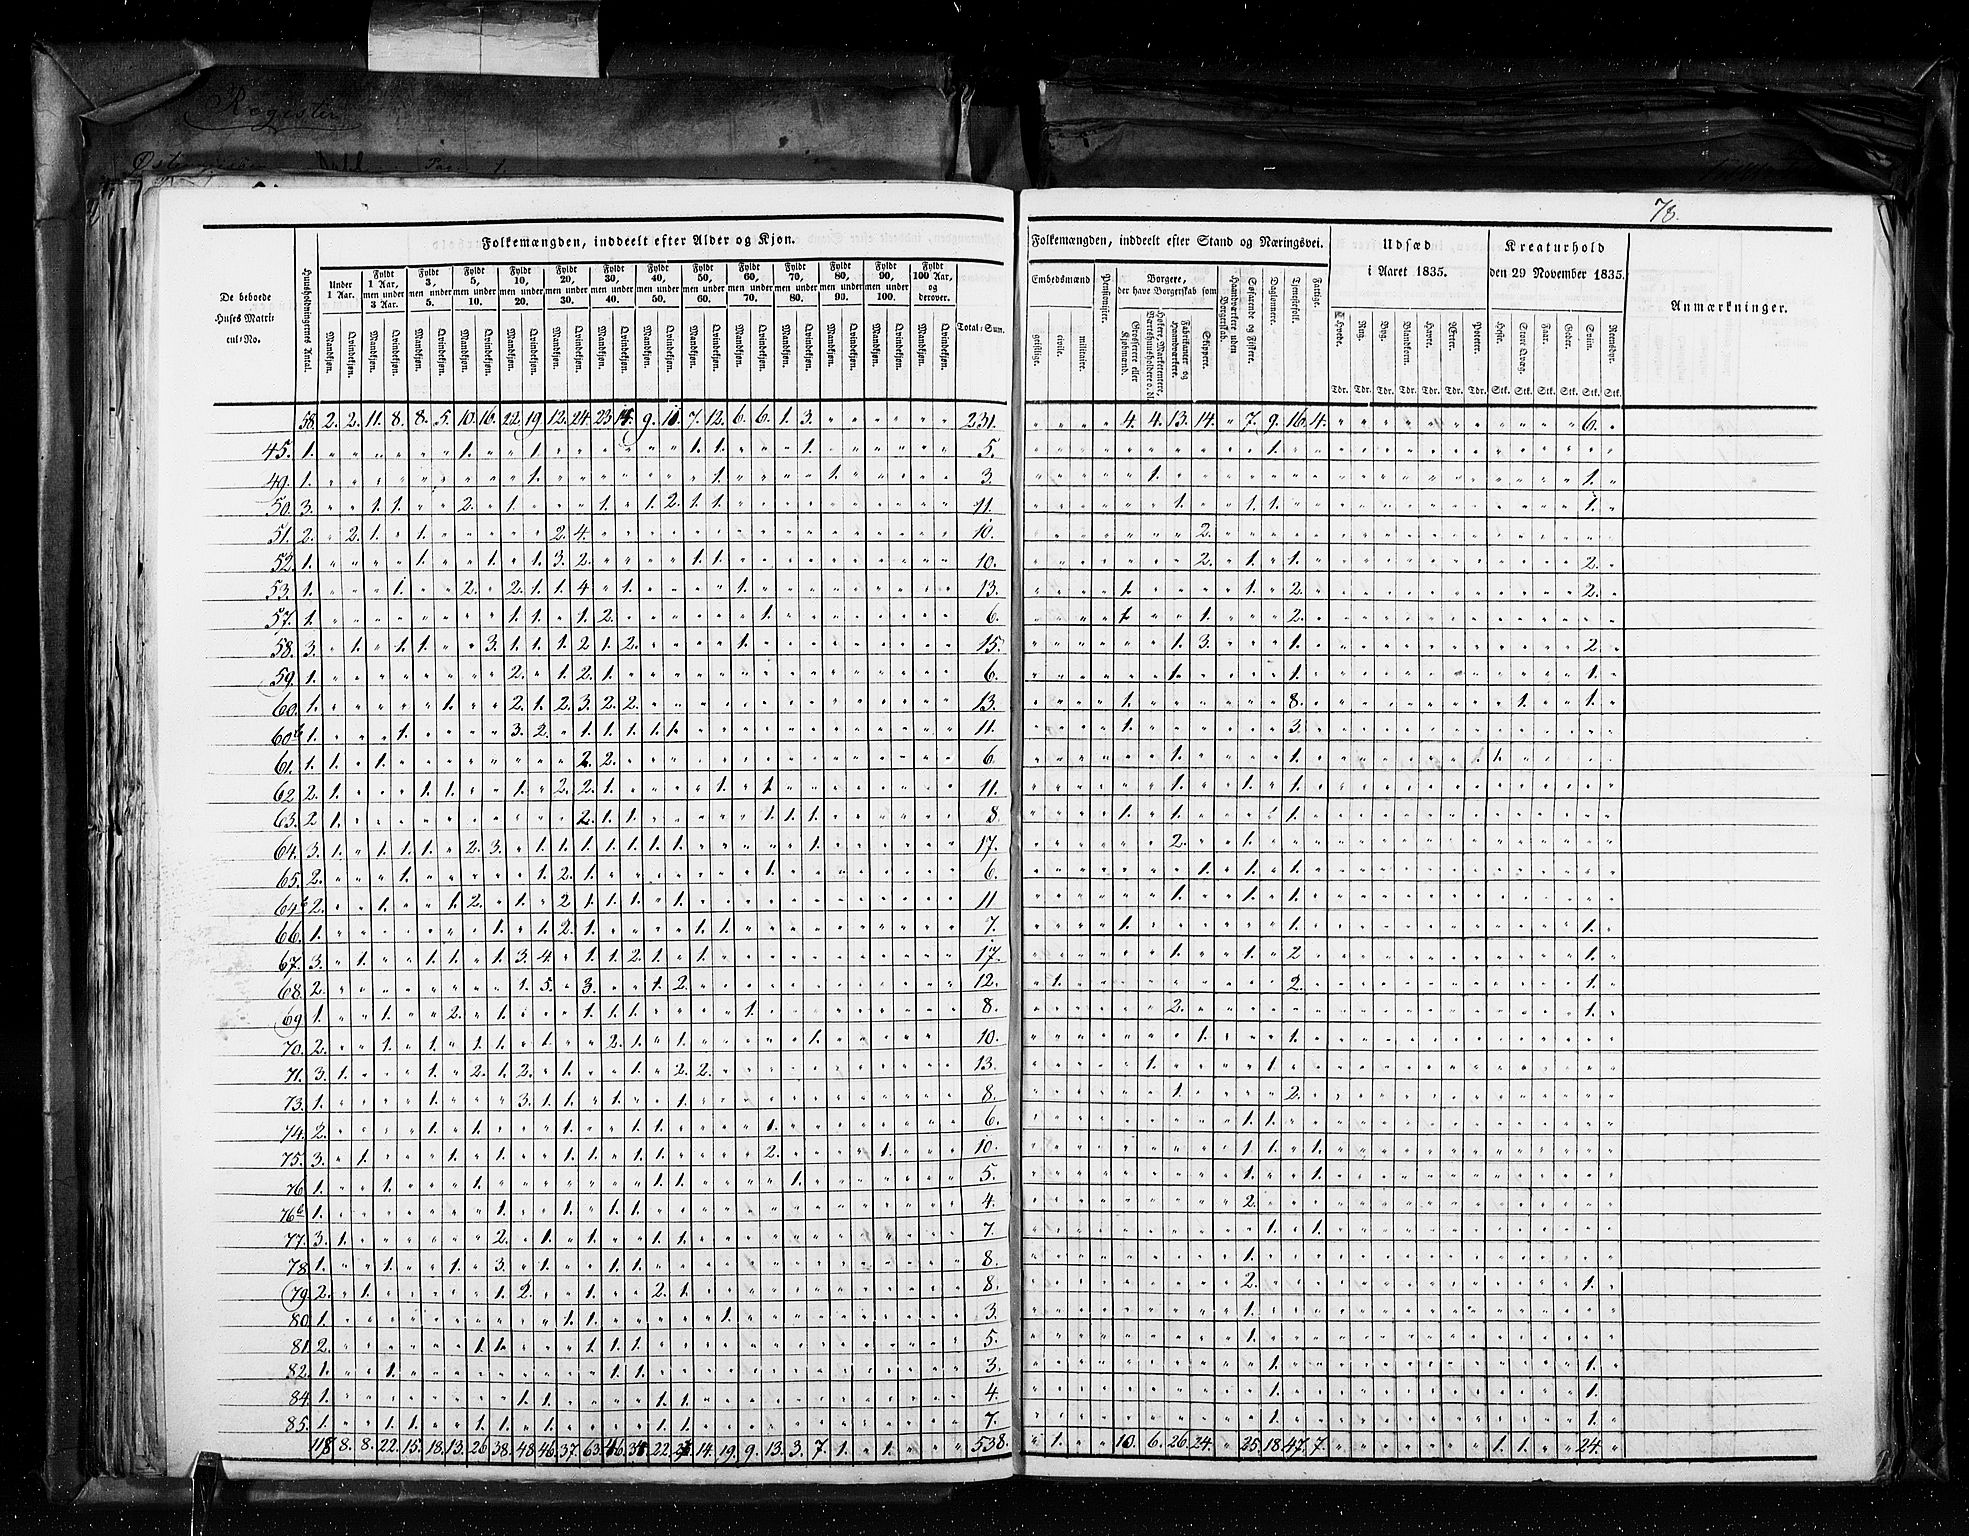 Register
78.
Folkemængden, inddeelt efter Alder og Kjøn.
Folkemængden, inddeelt efter Stand og Næringsvei.
Udsæd
i Aaret 1835.
Kreaturhold
den 29 November 1835.
Anmærkninger.
De beboede
Huses Matri-
cul-No.
Huusholdningernes Antal.
Under 1 Aar.
Fyldt 1 Aar, men under 3 Aar.
Fyldt 3, men under 5.
Fyldt 5, men under 10.
Fyldt 10, men under 20.
Fyldt 20, men under 30.
Fyldt 30, men under 40.
Fyldt 40, men under 50.
Fyldt 50, men under 60.
Fyldt 60, men under 70.
Fyldt 70, men under 80.
Fyldt 80, men under 90.
Fyldt 90, men under 100.
Fyldt 100 Aar, og derover.
Mandkjøn. Qvindekjøn.
Total-Sum.
Embedsmænd
geistlige. civile. militaire.
Pensionister.
Borgere, der have Borgerskab som
Grosserere eller Kjøbmænd.
Fabrikanter og Haandværkere.
Skippere.
Haandværkere uden Borgerskab.
Søfarende og Fiskere.
Daglønnere.
Tjenestefolk.
Fattige.
Hvede. Rug. Byg. Blandkorn. Havre. Erter. Poteter.
Tdr. Tdr. Tdr. Tdr. Tdr. Tdr. Tdr.
Heste. Stort Qvæg. Faar. Geder. Sviin. Reensdyr.
Stk. Stk. Stk. Stk. Stk. Stk.
58. 2. 2. 11. 8. 8. 5. 10. 16. 22. 19. 12. 24. 23 9. 7. 12. 6. 6. 1. 3. 231. 4. 4. 13. 14. 7. 9. 16. 4. 6.
45. 1. 1. 1. 1. 1. 1. 5. 1.
49. 1. 1. 1. 1. 3. 1. 1.
50. 3. 1. 1. 2. 1. 1. 1. 2. 1. 1. 11. 1. 1. 1. 1.
51. 2. 2. 1. 1. 2. 4. 10. 2.
52. 1. 1. 1. 1. 3. 2. 1. 1. 10. 2. 1. 1. 2.
53. 1. 1. 2. 2. 1. 1. 4 1. 1. 13. 1. 1. 2. 2.
57. 1. 1. 1. 1. 2. 1. 6. 1. 1. 2.
58. 3. 1. 1. 1. 3. 1. 1. 1. 2. 1. 2. 1. 15. 1. 3. 1. 2.
59. 1. 2. 1. 2. 1. 6. 1. 1. 1.
60. 1. 1. 2. 1. 2. 3. 2. 2. 13. 1. 8. 1. 1.
60b 1. 1. 3. 2. 1. 1. 1. 1. 1. 11. 1. 3.
61. 1. 1. 1. 2. 2. 6. 1. 1. 1.
62 2. 1. 1. 1. 1. 2. 2. 1. 1. 1. 11. 1. 1. 1.
63. 2 1. 2. 1. 1. 1. 1. 1. 8. 1. 1. 1 1.
64. 3. 1. 1. 1. 1. 2. 3. 1. 1. 1. 1. 1. 1. 1. 1. 17. 2. 1.
65. 2. 1. 1. 2. 1. 1. 6. 1. 1. 1.
64b 2. 1. 1. 2. 1. 2. 1. 1. 1. 1. 11 1. 1. 1.
66. 1. 1. 1. 2. 1. 1. 1. 7. 1. 1. 1.
67. 3. 1. 1. 1. 1. 3. 4. 1. 1. 2. 1. 1. 17. 1. 1. 2 1.
68. 2. 1. 5. 3. 1. 2. 12. 1. 2. 1.
69 1. 1. 2. 1. 1. 1. 1. 1. 8. 2. 1.
70. 2. 1. 1. 1. 1. 1. 2. 1. 1. 1. 10. 1. 1.
71. 3. 1. 1. 2. 1. 2. 1. 1. 2. 2. 13. 1. 1.
73. 1. 1. 3. 1. 1. 1. 1. 8. 1. 2.
74. 2. 1. 1. 1. 1. 1. 1. 6. 1. 1.
75. 3. 1. 1. 1. 1. 1. 1. 1. 2. 1. 10. 1. 1. 1.
76 1. 1. 1. 1. 1. 1. 5. 1. 1.
76b 1. 1. 1. 1. 1. 4. 2.
77. 3. 1. 2. 1. 1. 1. 1. 7. 1. 1.
78. 1. 1. 1. 3. 1. 1. 1. 8. 1.
79. 2. 1. 1. 2. 1. 2. 1. 8. 2. 1.
80. 1. 1. 1. 1. 3. 1.
81. 2. 1. 1. 1. 1. 1. 5. 1.
82. 1. 1. 1. 1. 3. 1. 1.
84. 1. 1. 1. 1. 1. 4. 1. 1.
85. 1. 1. 1. 1. 1. 1. 1. 1. 7. 1. 1.
118. 8. 8. 22. 15. 18. 13. 26 38. 48. 46. 37. 63. 22. 14. 19. 9. 13. 3. 7. 1. 1. 538. 1. 10. 6. 26. 24. 25. 18. 47. 7. 1. 1. 24.